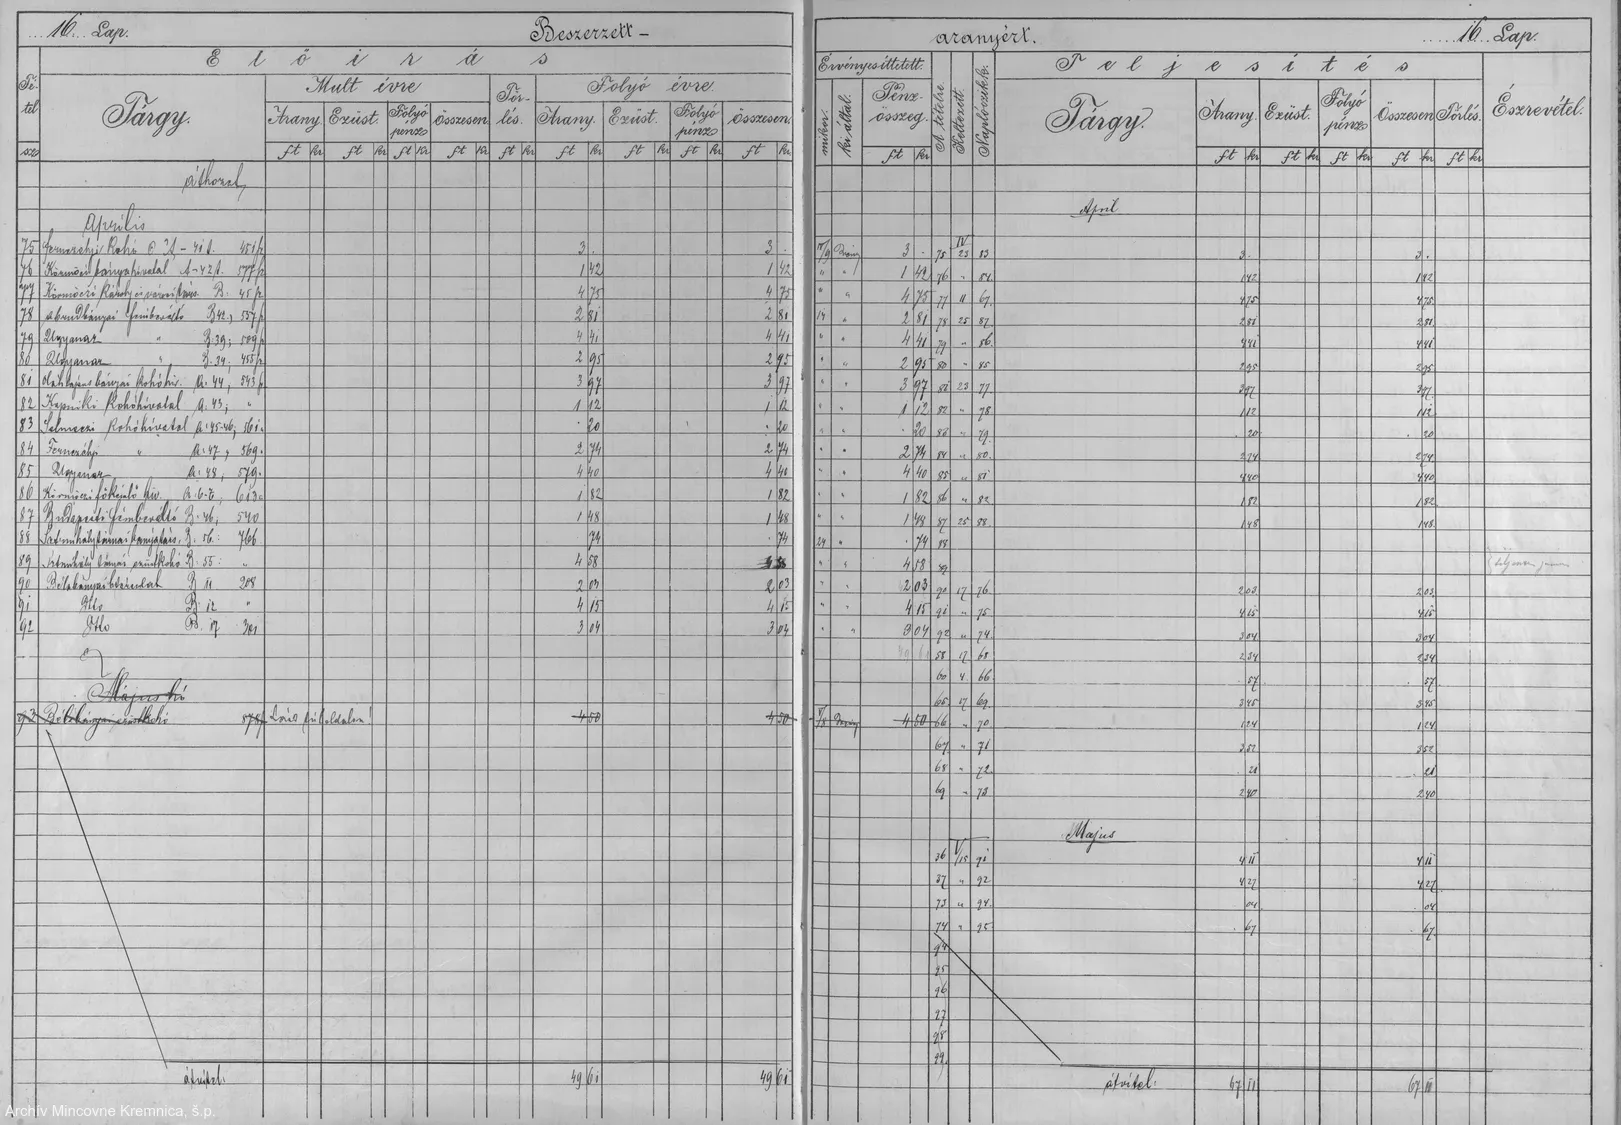 16. Lap.
Beszerzett-
Előirás
Tétel sz.
Tárgy.
Mult évre
Törlés.
Folyó évre
Arany. Ezüst. Folyó pénz Összesen
Arany. Ezüst. Folyó pénz Összesen.
ft kr ft kr ft kr ft kr ft kr ft kr ft kr ft kr ft kr
áthozat
Április
75 451 3 . 3 .
76 Körmöczi bányahivatal A-42 t. 577 1 42 1 42
77 Körmöczi B. 45 4 75 4 75
78 B 42, 557 2 81 2 81
79 Ugyanaz " B. 39; 509 4 41 4 41
80 Ugyanaz " B. 34, 455 2 95 2 95
81 A. 44, 543 3 97 3 97
82 Kapniki Kohóhivatal A. 43; " 1 12 1 12
83 Selmeczi Kohóhivatal A. 45-46; 561 . 20 . 20
84 " A. 47, 569 2 74 2 74
85 Ugyanaz A. 48, 579 4 40 4 40
86 Körmöczi 613 1 82 1 82
87 Budapesti fémbeváltó B. 46, 540 1 48 1 48
88 B. 56. 766 . 74 . 74
89 B. 55. " 4 58 4 58
90 B 11 208 2 03 2 03
91 Dtto B. 12 " 4 15 4 15
92 Dtto B. 17 301 3 04 3 04
Május hó
93 4 50 4 50
átvitel: 49 61 49 61
aranyért.
16. Lap.
Érvényesíttetett.
Teljesítés
mikor. ki által. Pénzösszeg. A tételre. Keltezett. Naplócikk.
Tárgy.
Arany. Ezüst. Folyó pénz Összesen Törlés.
Észrevétel.
ft kr ft kr ft kr ft kr ft kr ft kr
April
3 . 75 IV 23 83 3 . 3 .
" " 1 42 76 " 84 1 42 1 42
" " 4 75 77 11 67 4 75 4 75
14 " 2 81 78 25 87 2 81 2 81
" " 4 41 79 " 86 4 41 4 41
" " 2 95 80 " 85 2 95 2 95
" " 3 97 81 23 77 3 97 3 97
" " 1 12 82 " 78 1 12 1 12
" " . 20 83 " 79 . 20 . 20
" " 2 74 84 " 80 2 74 2 74
" " 4 40 85 " 81 4 40 4 40
" " 1 82 86 " 82 1 82 1 82
" " 1 48 87 25 88 1 48 1 48
24 " . 74 88
" " 4 58 89
" " 2 03 90 17 76 2 03 2 03
" " 4 15 91 " 75 4 15 4 15
" " 3 04 92 " 74 3 04 3 04
58 17 68 2 34 2 34
60 4 66 . 57 . 57
65 17 69 3 45 3 45
4 50 66 " 70 1 24 1 24
67 " 71 3 52 3 52
68 " 72 . 21 . 21
69 " 73 2 40 2 40
Majus
36 V/15 91 4 11 4 11
37 " 92 4 27 4 27
73 " 94 . 04 . 04
74 " 95 . 67 . 67
94
95
96
97
98
99
átvitel: 67 11 67 11
Archív Mincovne Kremnica, š.p.